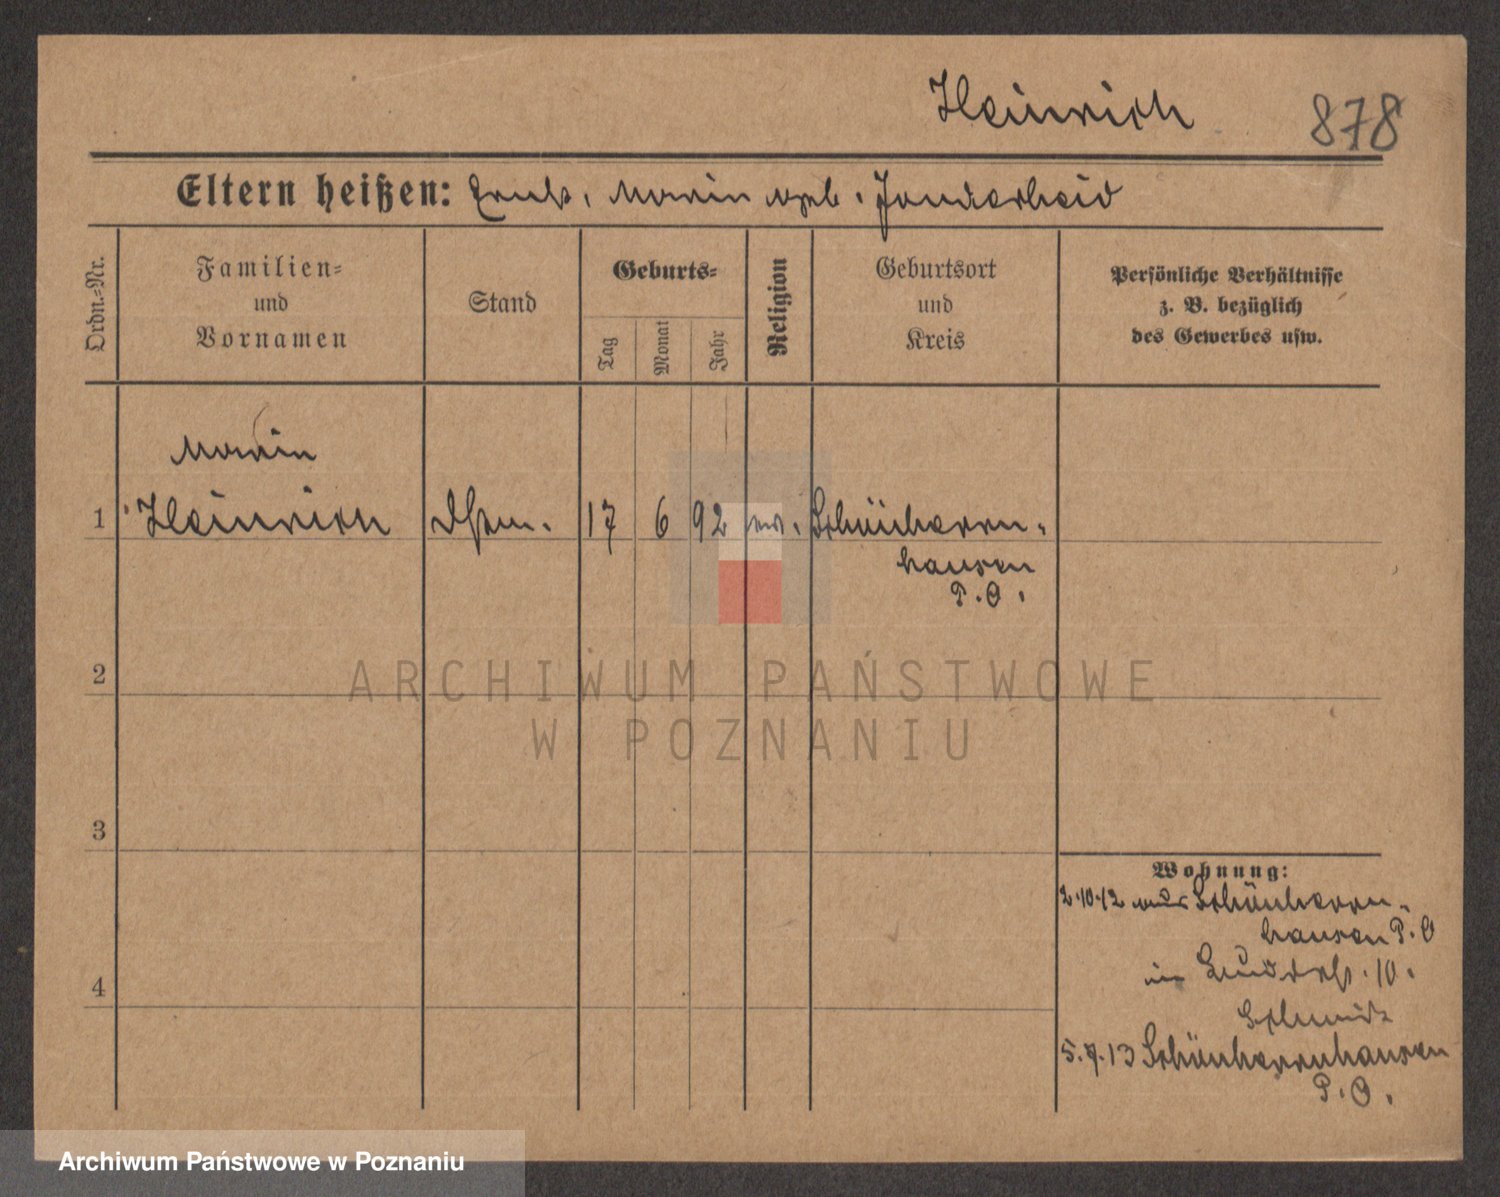 Heinrich
878
Eltern heißen: Ernst, Maria geb. Sonderheid
Ordn.-Nr.
Familien-
und
Vornamen
Stand
Geburts-
Tag
Monat
Jahr
Religion
Geburtsort
und
Kreis
Persönliche Verhältnisse
z. B. bezüglich
des Gewerbes usw.
Maria
1 Heinrich 17 6 92 ev. Schönherrn-
hausen
P. O.
2
3
4
Wohnung:
2.10.12 aus Schönherrn-
hausen P. O
in 10.
Schmidt
5.7.13 Schönherrnhausen
P. O.
ARCHIWUM PAŃSTWOWE
W POZNANIU
Archiwum Państwowe w Poznaniu